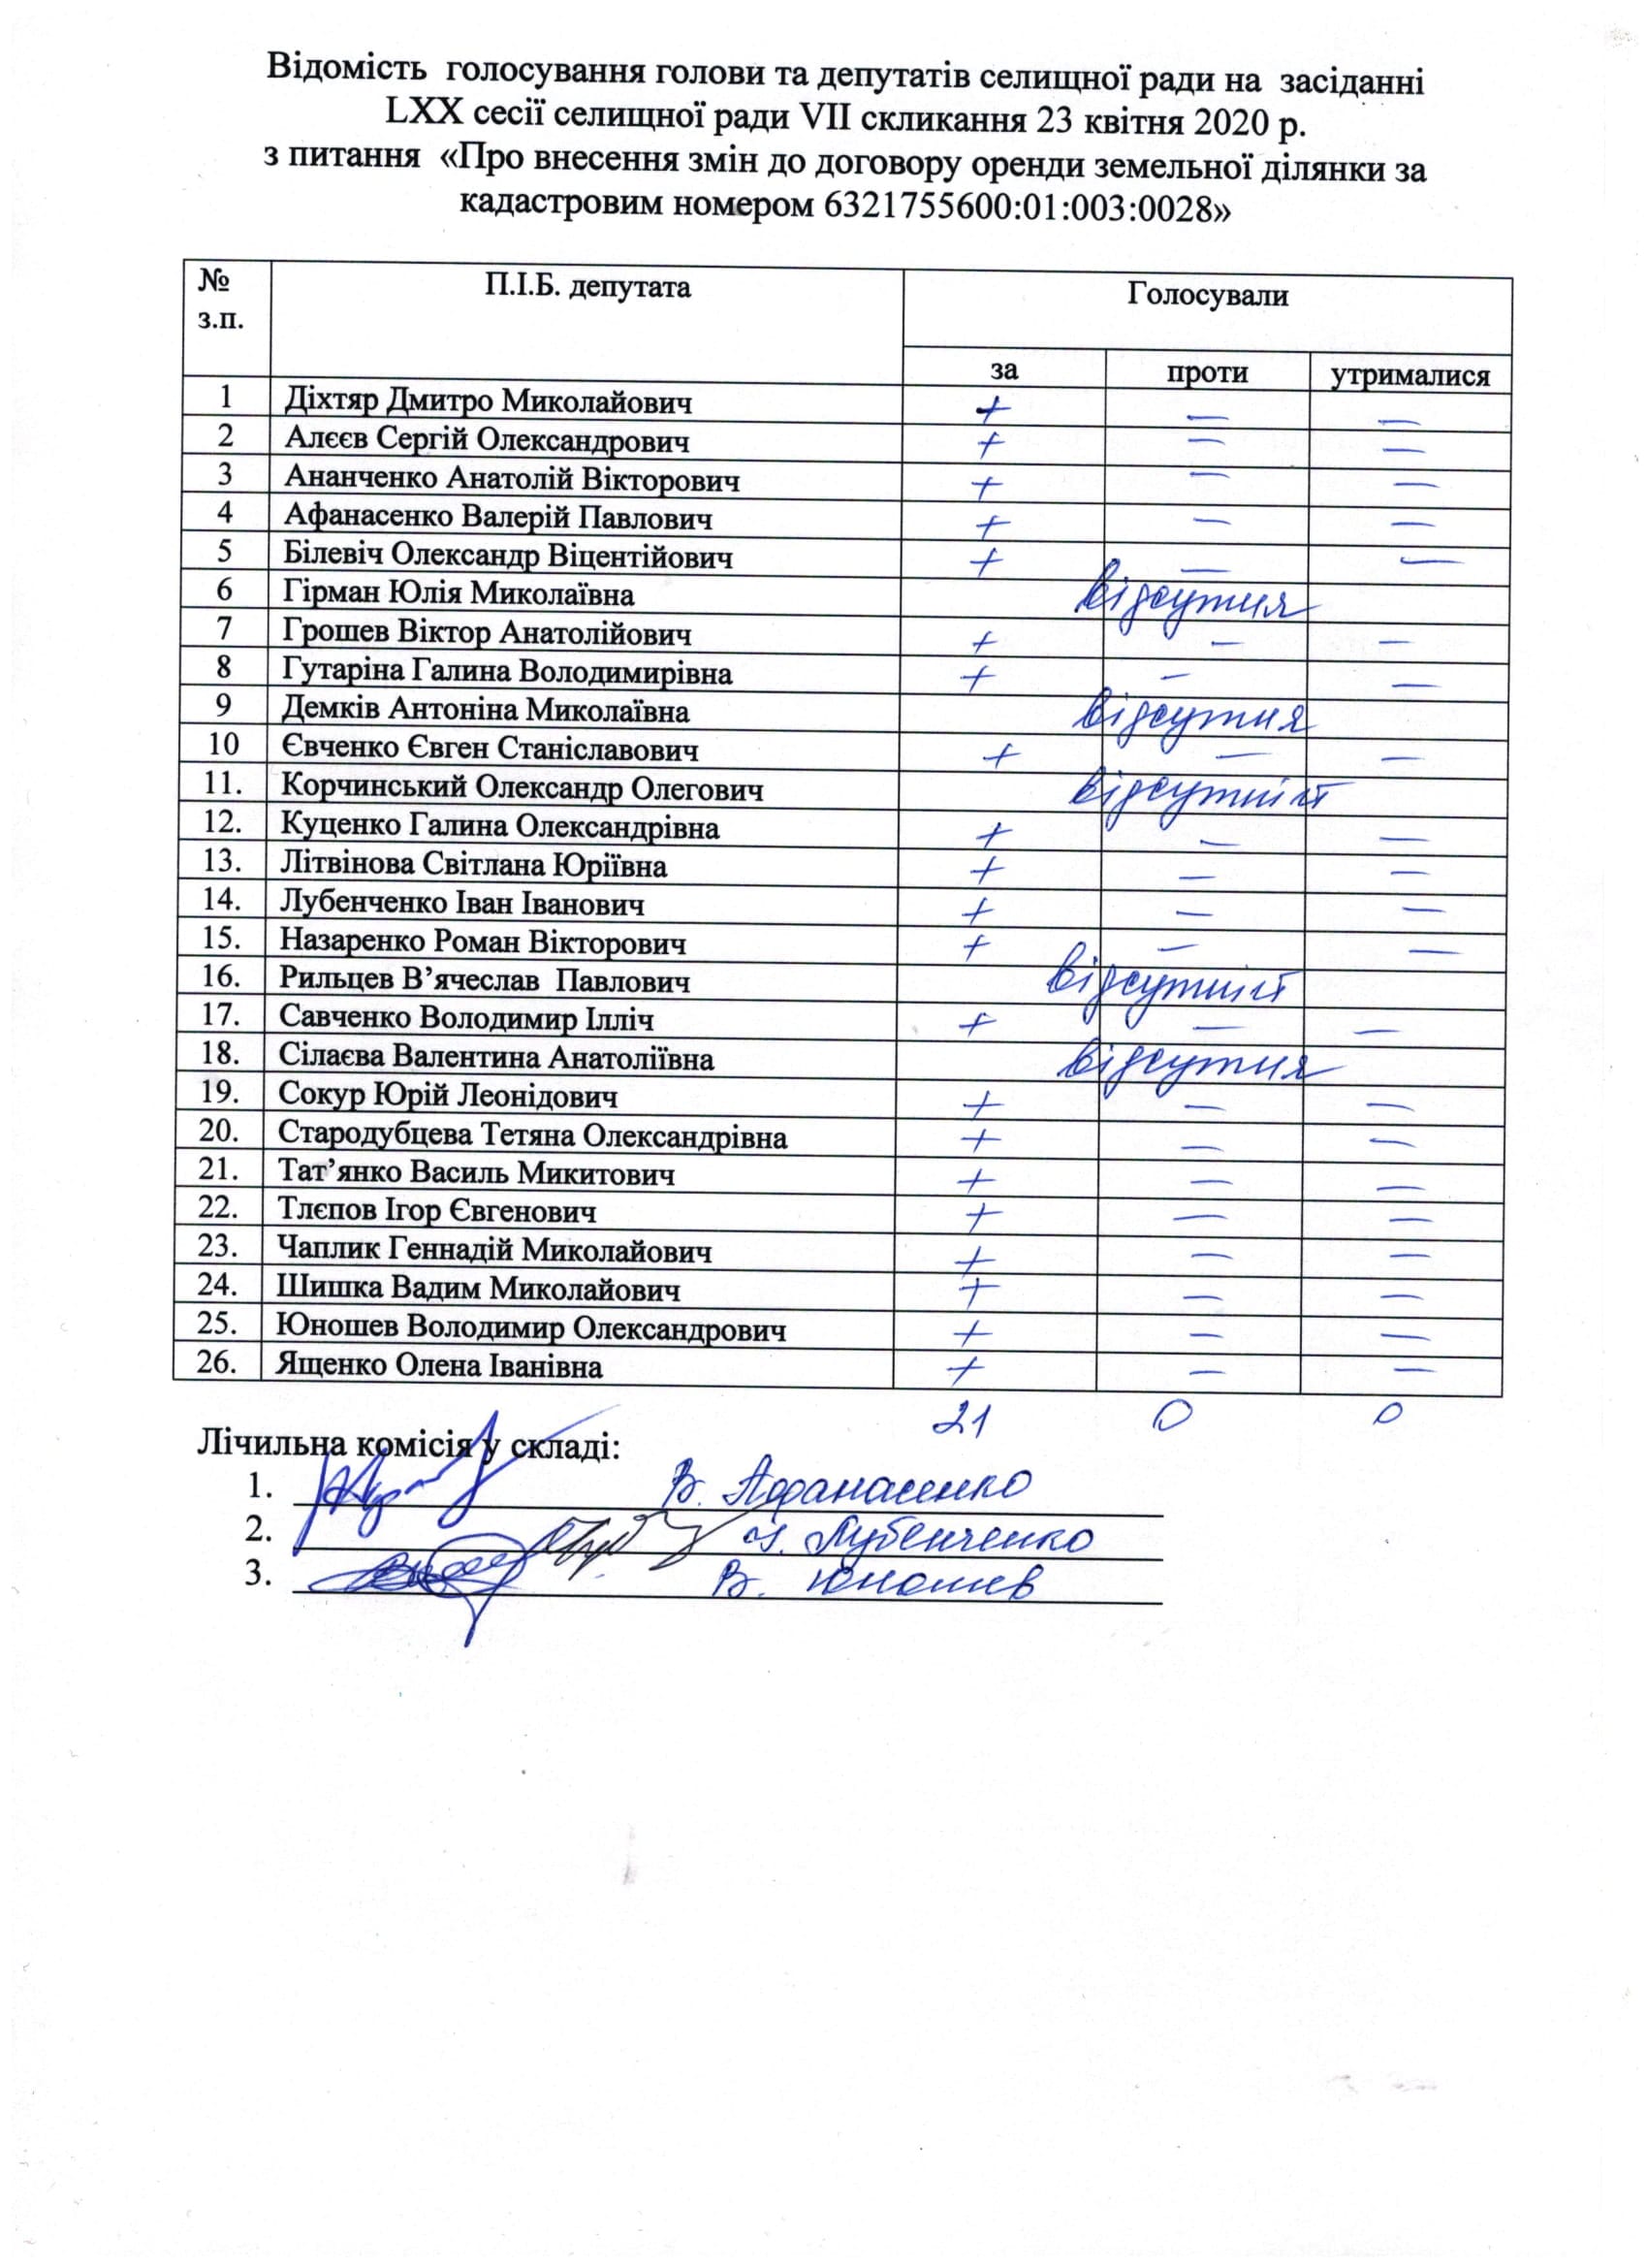 Відомість голосування голови та депутатів селищної ради на засіданні
LXX сесії селищної ради VII скликання 23 квітня 2020 р.
з питання «Про внесення змін до договору оренди земельної ділянки за
кадастровим номером 6321755600:01:003:0028»
№ з.п. П.І.Б. депутата Голосували
за проти утрималися
1 Діхтяр Дмитро Миколайович + — —
2 Алєєв Сергій Олександрович + — —
3 Ананченко Анатолій Вікторович + — —
4 Афанасенко Валерій Павлович + — —
5 Білевіч Олександр Віцентійович + — —
6 Гірман Юлія Миколаївна відсутня
7 Грошев Віктор Анатолійович + — —
8 Гутаріна Галина Володимирівна + — —
9 Демків Антоніна Миколаївна відсутня
10 Євченко Євген Станіславович + — —
11. Корчинський Олександр Олегович відсутній
12. Куценко Галина Олександрівна + — —
13. Літвінова Світлана Юріївна + — —
14. Лубенченко Іван Іванович + — —
15. Назаренко Роман Вікторович + — —
16. Рильцев В’ячеслав Павлович відсутній
17. Савченко Володимир Ілліч + — —
18. Сілаєва Валентина Анатоліївна відсутня
19. Сокур Юрій Леонідович + — —
20. Стародубцева Тетяна Олександрівна + — —
21. Тат’янко Василь Микитович + — —
22. Тлєпов Ігор Євгенович + — —
23. Чаплик Геннадій Миколайович + — —
24. Шишка Вадим Миколайович + — —
25. Юношев Володимир Олександрович + — —
26. Ященко Олена Іванівна + — —
21 0 0
Лічильна комісія у складі:
1. В. Афанасенко
2. І. Лубенченко
3. В. Юношев